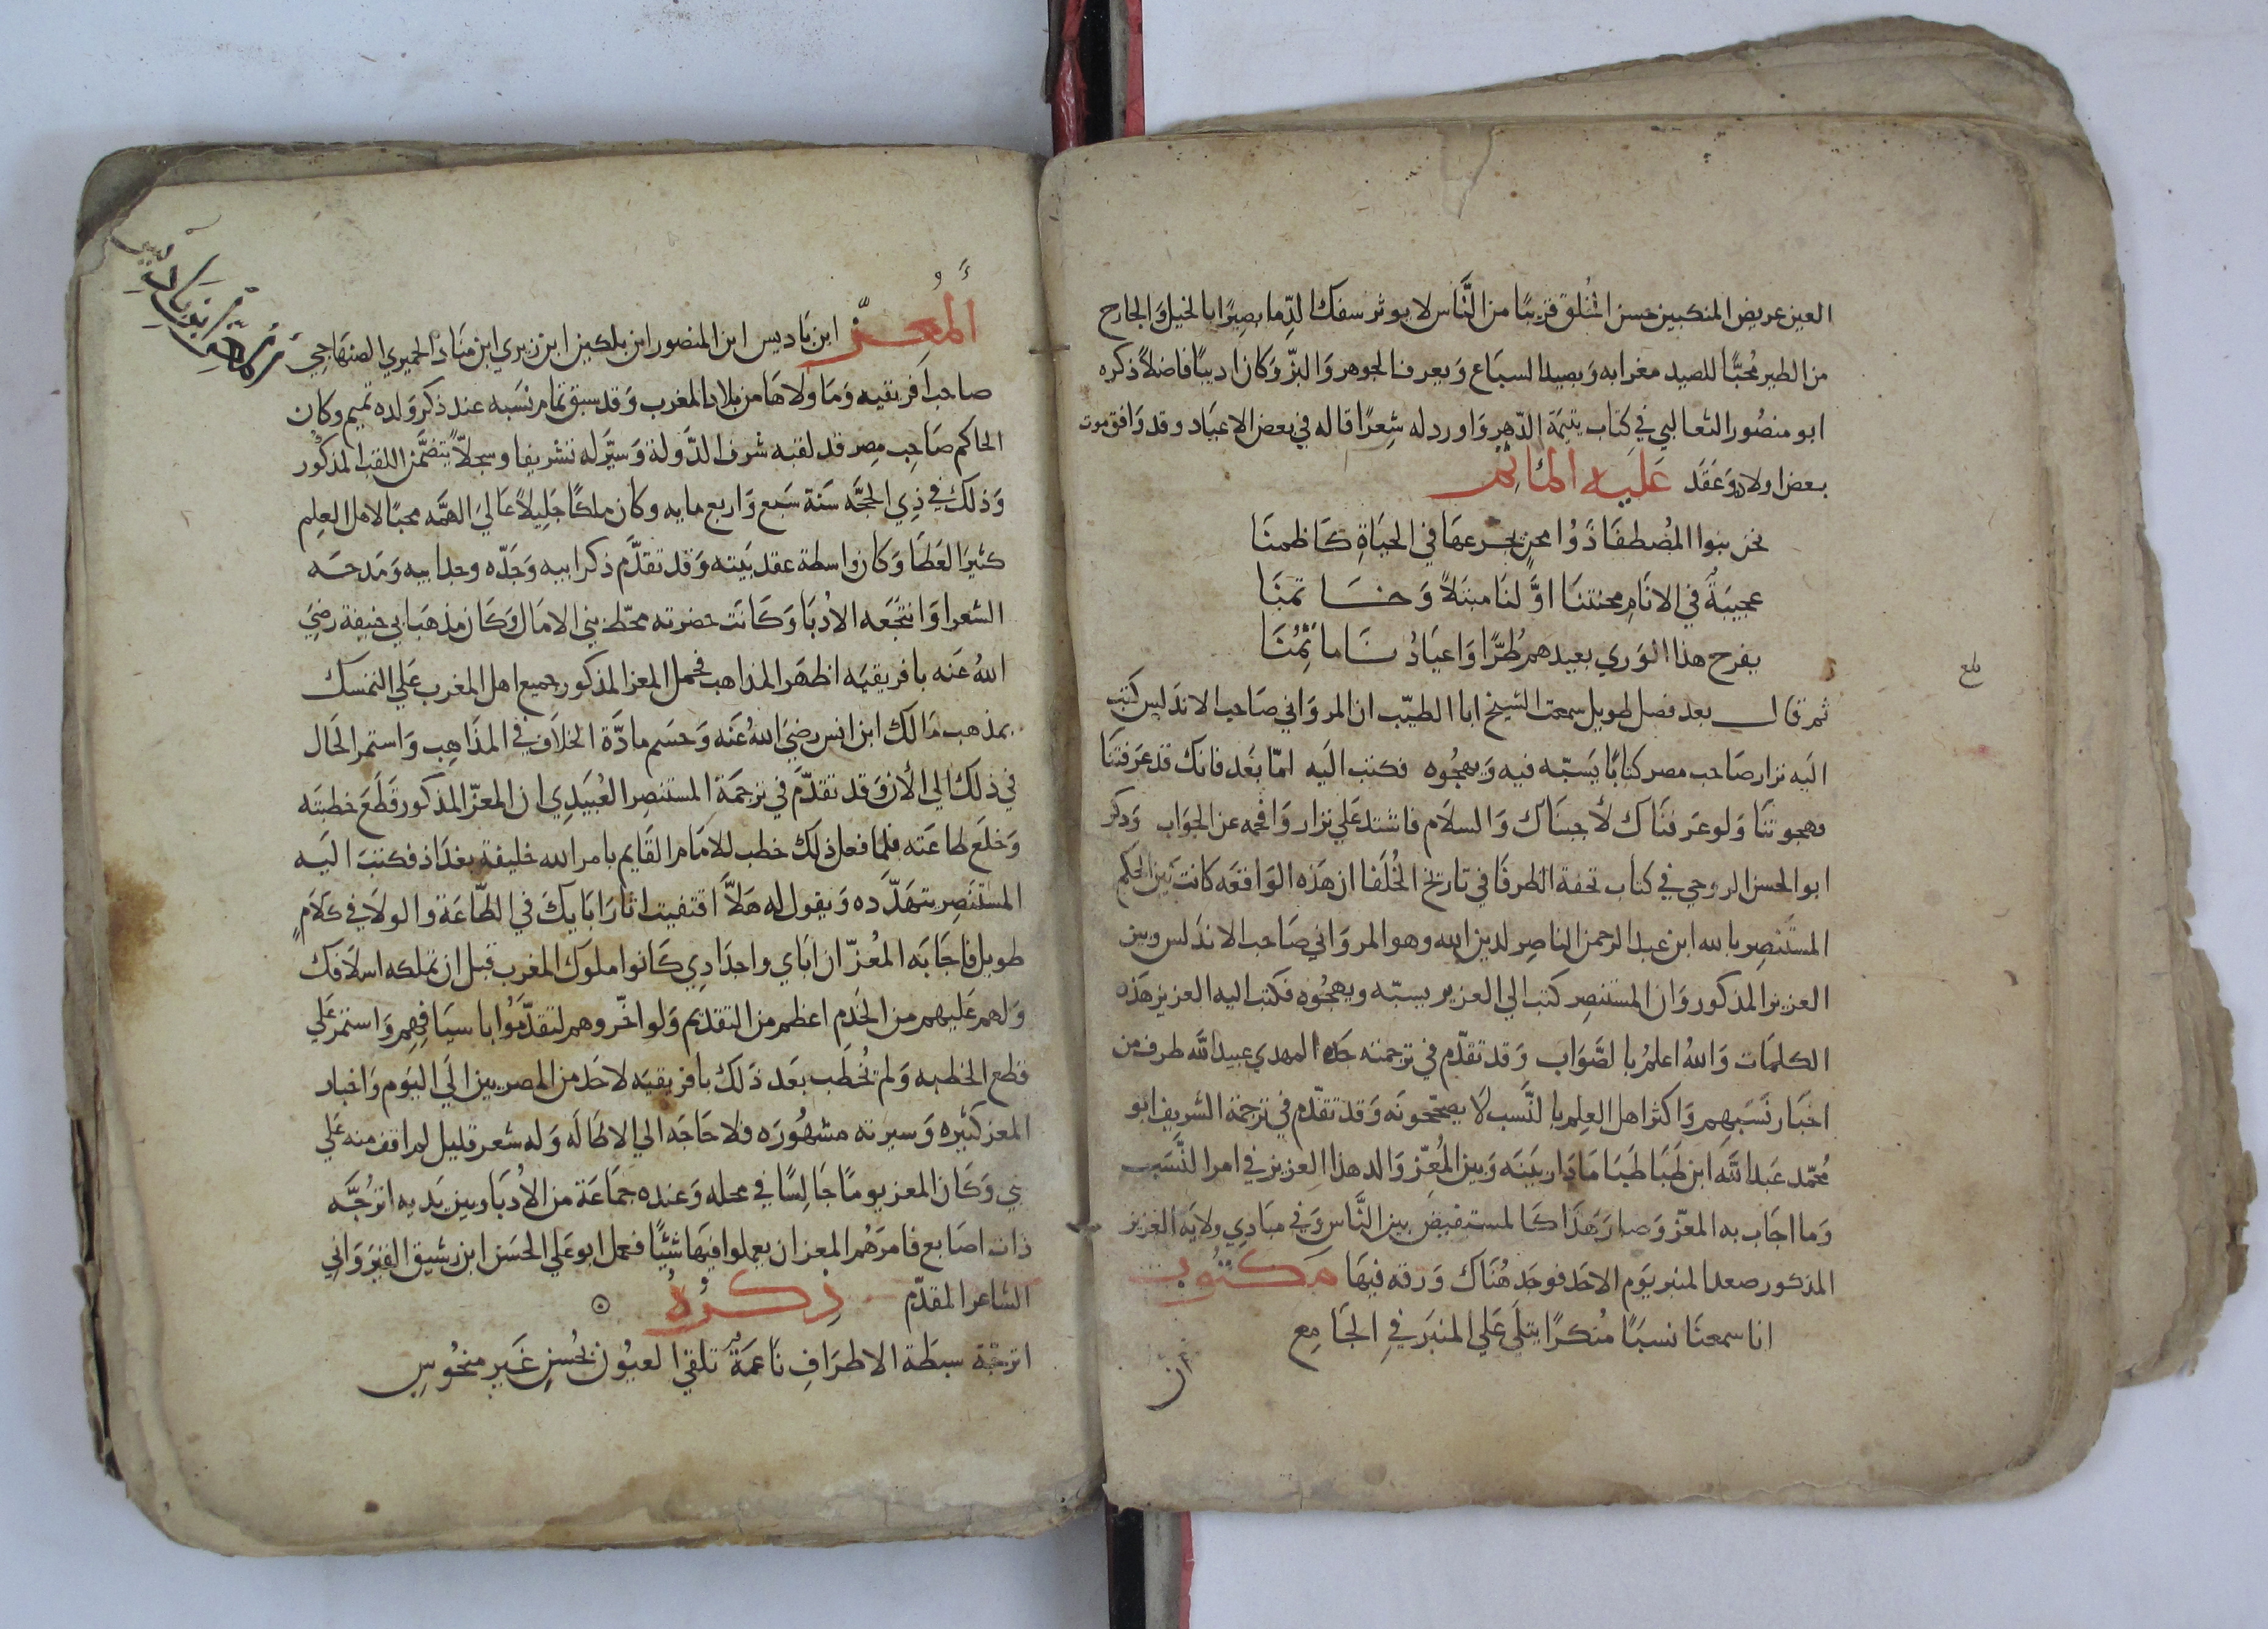 العين عريض المنكبين حسن الخُلق قريبًا من النَّاس لا يوثر سفك الدِّما بصِيرًا بالخيل وَالجارح
من الطير مُحبًّا للصيد مغرا به وَبصيد السبَاع وَيعرف الجوهر وَالبزّ وَكان اديبًا فاضلًا ذكره
ابو منصُور الثعالبي في كتاب يتيمَة الدّهر وَاورد له شِعرًا قاله في بعض الاعيَاد وقد وَافق موت
بعض اولاد وَعَقَد عَليه المائم
نحن بنوا المُصطفَا ذَوُا محن يجرعهَا في الحيَاةِ كَاظمنَا
عجيبَةٌ في الانَامِ محنتنَا اوَّلنَا مبتلًا وَخاتمنَا
يفرح هذا الوَري بعيدهم طُرًّا وَاعيَادُنا ماتمُنَا
ثم قال بعد فصل طويل سمعت الشيخ ابا الطيّب ان المروَاني صَاحب الاندَلس كَتب
اليَه نزار صَاحب مصر كتابًا يَسَبّه فيه وَيهجُوه فكتب اليَه امّا بَعَد فانك قد عَرفتنَا
فهجوتنَا وَلو عَرفنَاك لأجبنَاك وَالسلاَم فاشتد عَلي نزار وَافحمه عن الجوَاب وَذكر
ابو الحسن الروحي في كتاب تحفة الظرفَا في تاريخ الخُلَفا ان هَذه الوَاقعَه كانت بَين الحكم
المستَنصِر بالله ابن عبد الرحمن الناصِر لدين الله وهو المروَاني صَاحب الاندَلس وبين
العزيز المذكور وَان المستنصِر كتب الي العزيز يسبّه ويهجُوه فكتب اليه العزيز هَذه
الكلمَات وَاللهُ اعلمُ بالصَّوَاب وَقد تقدّم في ترجمته جَده المهدي عبيد الله طرف من
اخبَار نَسَبِهِم وَاكثر اهل العِلم بالنَّسب لا يصحّحونَه وَقد تقدّم في ترجمة الشريف ابو
مُحمّد عَبد الله ابن طَبَا طَبَا مَا دَار بيَنَه وَبين المُعِزّ وَالد هذا العزيز في امر النَّسَب
وَما اجَاب به المعزّ وَصار هَذا كَالمستفيض بين النَّاس وَفي مبَادِي ولايَه العَزيز
المذكور صعد المنبر يوَم الاحَد فوجَد هُنَاك وَرقه فيهَا مَكتُوب
انا سمعنَا نسبَاً مُنكرًا يتلَي عَلي المنبَر فيِ الجَامِع
ان
المُعِزّ ابن بَاديس ابن المنصور ابن بلكين ابن زيري ابن منَاد الحميري الصنهَاجي
صاحب افريقيه وَمَا وَلاهَا من بلاد المغرب وَقد سبق تمام نسَبه عند ذكر وَلده تميم وكان
الحاكم صَاحِب مِصر قد لقبه شرف الدَّولة وَسيّر له تشريفا وسجلاً يتضَمَّن اللقب المَذكُور
وَذلك في ذِي الحجَّه سَنَة سَبع وَاربع مايه وكان ملكًا جَلِيلاً عَاليَ الهمَّه محبًا لاهل العِلم
كثيَر العَطَا وَكان وَاسطة عقد بَيته وَقد تقدَّم ذكر ابيه وَجَدّه وجد ابيه وَمَدحَه
الشعرا وَانتجَعَه الادُبَا وَكَانَت حضرته محطّ بني الامَال وَكَان مذهَب ابي حنيفة رضيَ
اللهُ عَنه بافريقيَه اظهَر المذاهب فحمل المعز المذكور جميع اهل المغرب عَلي التمسك
بمذهب مَالك ابن انس رضيَ اللهُ عَنه وَحسَم مادَّة الخلاَف في المذَاهِب وَاستمر الحَال
في ذلك الي الأن وَقد تقدَّم في ترجَمَة المستنصِر العُبَيدِي ان المعزّ المذكور قَطَعَ خطبتَه
وَخلَع طاعَته فلمَا فعل ذلك خطب للامَام القَايم بامر الله خليفة بغدَاذ فكتب اليَه
المستَنصِر يتهَدّده وَيقول له هَلاَّ اقتفيت اثَار ابَايكَ في الطّاعَة والولاَ في كَلاَمٍ
طويل فاجَابَه المُعَزّ ان ابَاي واجدَادِي كَانوا ملوك المغرب قبل ان تملكه اسلاَفك
وَلهم عَليهم من الخِدَمِ اعظم من التقدِيم وَلو اخّروهم لتقدّمُوا باسيَافِهِم وَاستمر عَلي
قطع الخطبه وَلم يُخطَب بَعَد ذَلك بافريقيَه لاحَد من المصريين الَي اليَوم وَاخبار
المعز كثيَره وَسيرته مشهُورَه فلا حَاجَه الي الاطَالَه وَله شعر قليل لم اقف منه عَلي
شي وَكَان المعز يومًا جَالسًا في مجلسه وَعنده جمَاعَة من الادُبَا وبين يَديه اترُجَّه
ذات اصَابع فامرَهُم المعز ان يعملوا فيهَا شيئًا فعمل ابو عَلي الحسَن ابن رشيق القيرَوَاني
الشاعر المقدّم ذِكرُهُ
اترجّة سبطَة الاطرَافِ ناعمَةٌ تلقي العيُون بحُسنٍ غَير منحُوسِ